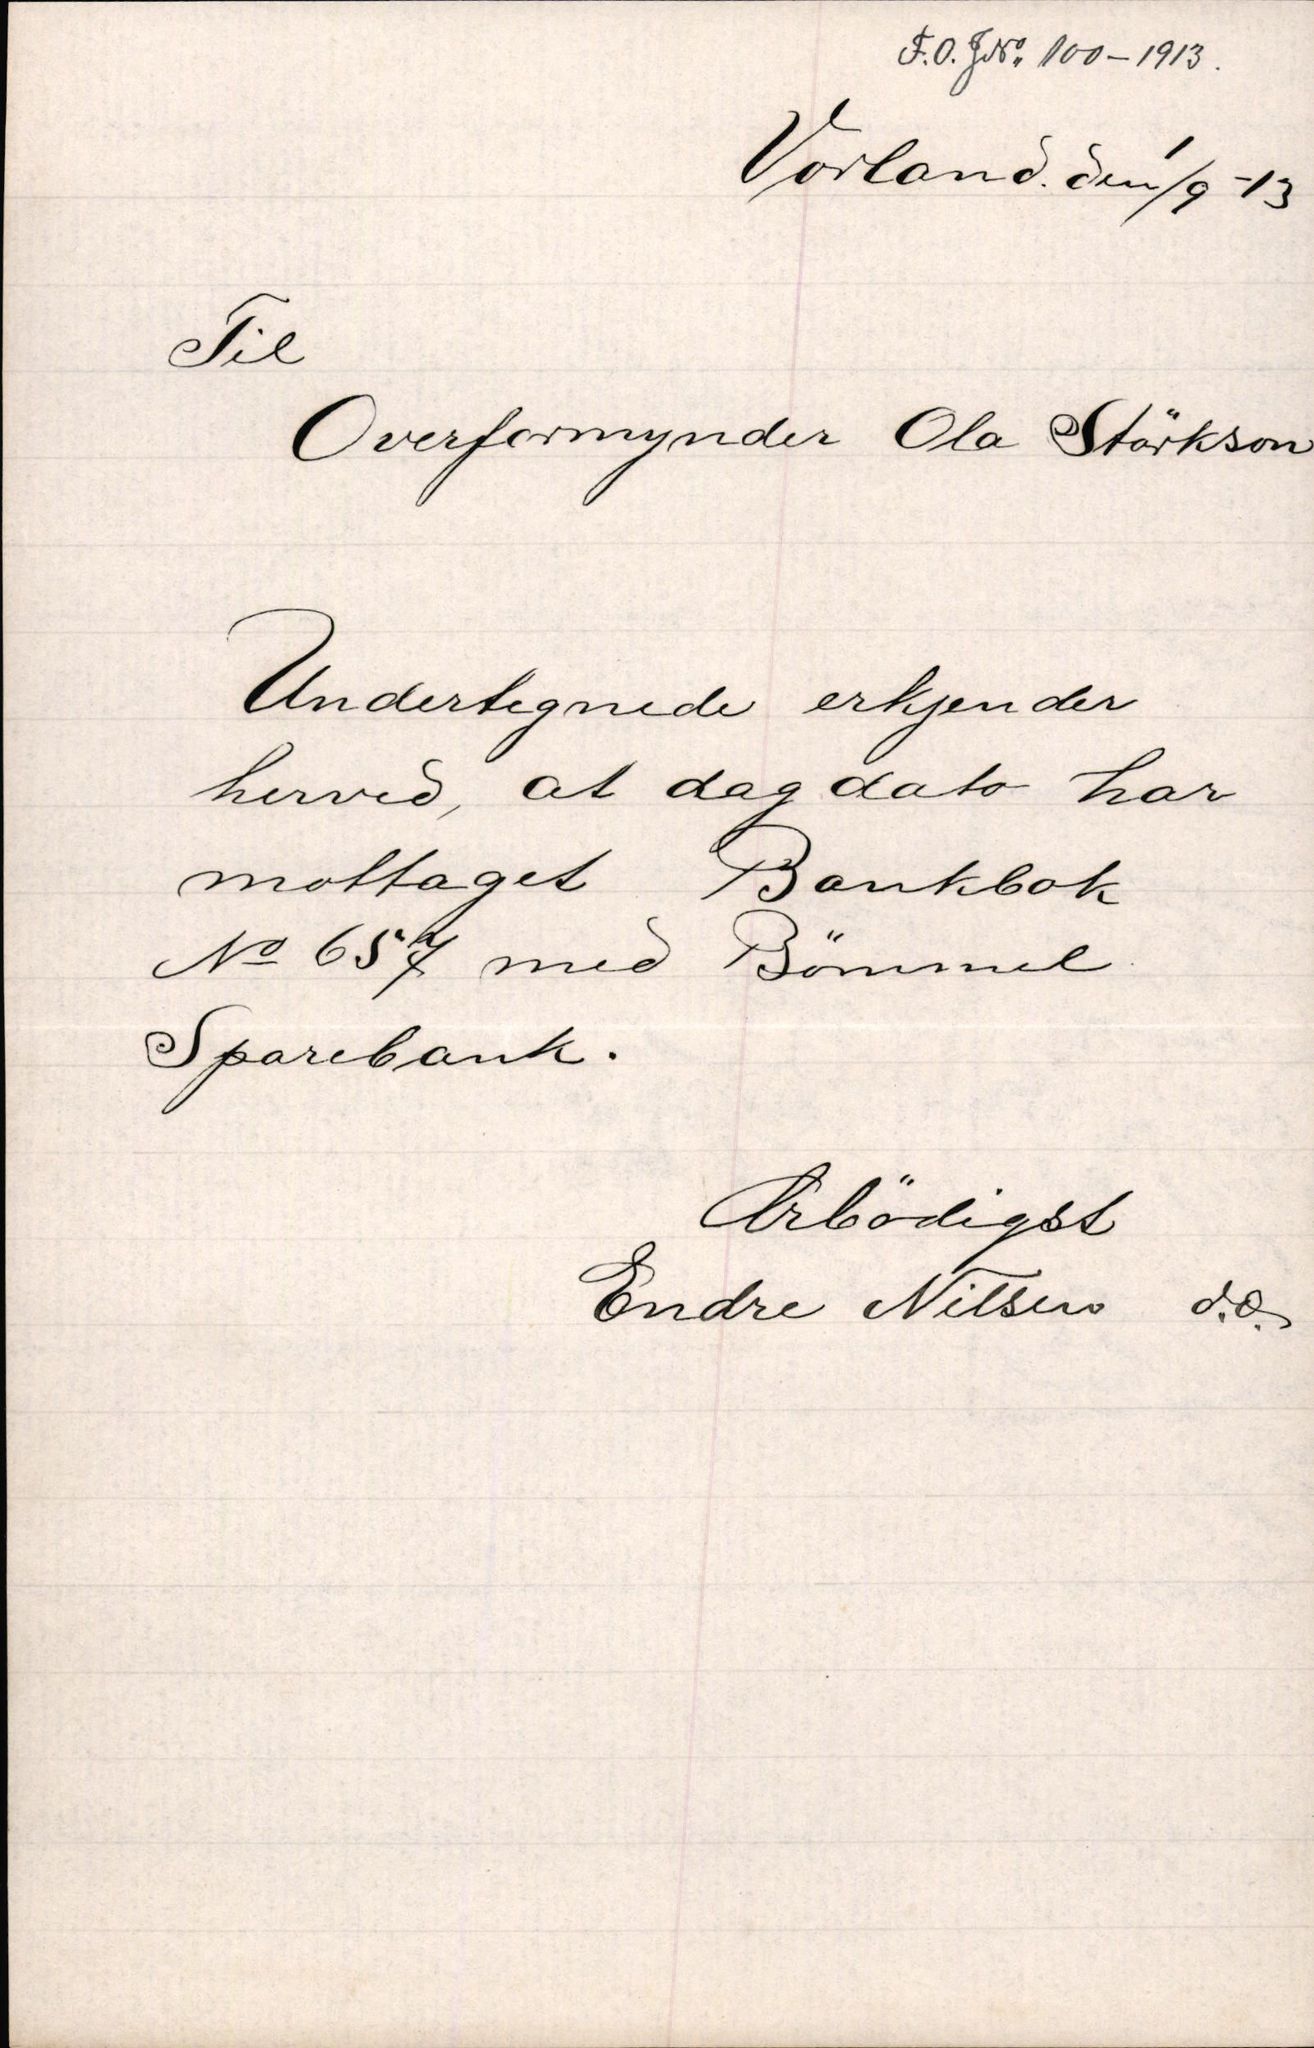 F.O. J.No. 100-1913.
Vorland. den 1/9-13
Til
Overformynder Ola Störkson
Undertegnede erkjender
herved, at dag dato har
mottaget Bankbok
No 657 med Bömmel
Sparebank.
Ærbödigst
Endre Nilsen d.e.